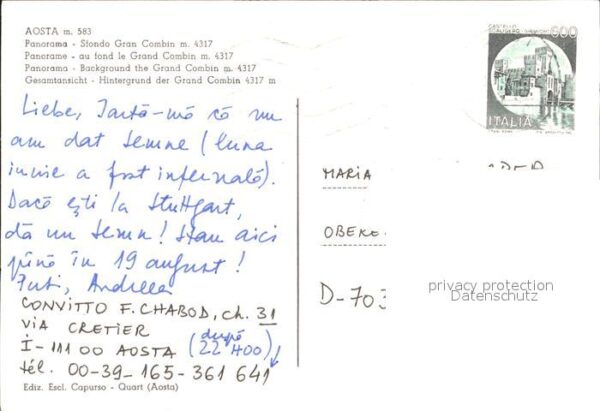 AOSTA m. 583
Panorama - Sfondo Gran Combin m. 4317
Panorame - au fond le Grand Combin m. 4317
Panorama - Background the Grand Combin m. 4317
Gesamtansicht - Hintergrund der Grand Combin 4317 m
CASTELLO
SCALIGERO - SIRMIONE
600
ITALIA
Liebe, Iartă-mă că nu
am dat semne (luna
iunie a fost infernală).
Dacă ești la Stuttgart,
dă un semn! Stau aici
până în 19 august!
Andreea
CONVITTO F. CHABOD, ch. 31
VIA CRETIER
I-111 00 AOSTA (după
22 H00)
tél. 00-39-165-361 641
Ediz. Escl. Capurso - Quart (Aosta)
MARIA
OBERE
D-703
privacy protection
Datenschutz